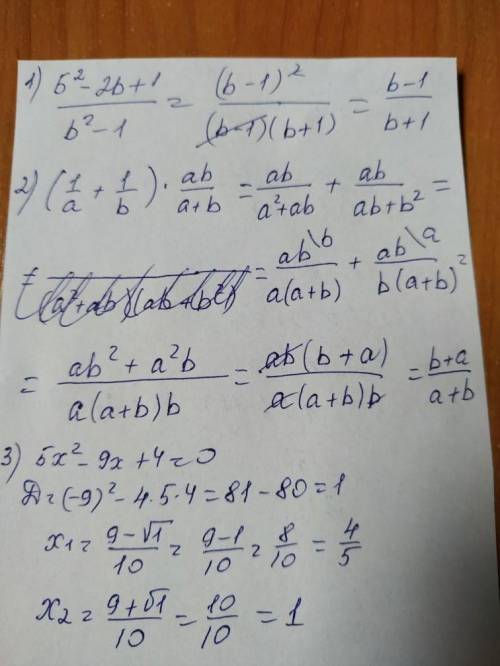 1) (b² - 2b + 1)/(b² - 1) = (b - 1)²/((b - 1)(b + 1)) = (b - 1)/(b + 1)
2) (1/a + 1/b) · ab/(a + b) = ab/(a² + ab) + ab/(ab + b²) =
= ab\b/(a(a + b)) + ab\a/(b(a + b)) =
= (ab² + a²b)/(a(a + b)b) = ab(b + a)/(a(a + b)b) = (b + a)/(a + b)
3) 5x² - 9x + 4 = 0
Д = (-9)² - 4·5·4 = 81 - 80 = 1
x₁ = (9 - √1)/10 = (9 - 1)/10 = 8/10 = 4/5
x₂ = (9 + √1)/10 = 10/10 = 1